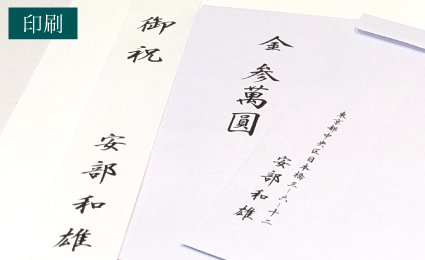 印刷
御祝
安部和雄
金参萬圓
東京都中央区日本橋三-六-十二
安部和雄